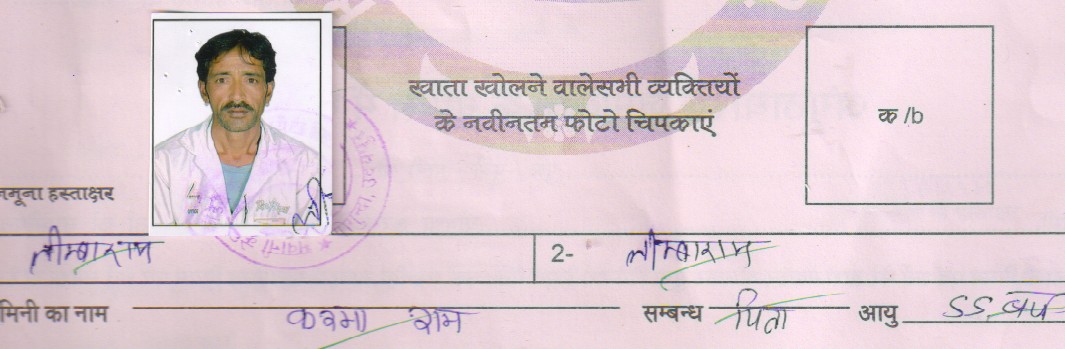 खाता खोलने वालेसभी व्यक्तियों
के नवीनतम फोटो चिपकाएं
क /b
नमूना हस्ताक्षर
लीम्बाराम 2- लीम्बाराम
मिनी का नाम राम सम्बन्ध पिता आयु 55 वर्ष